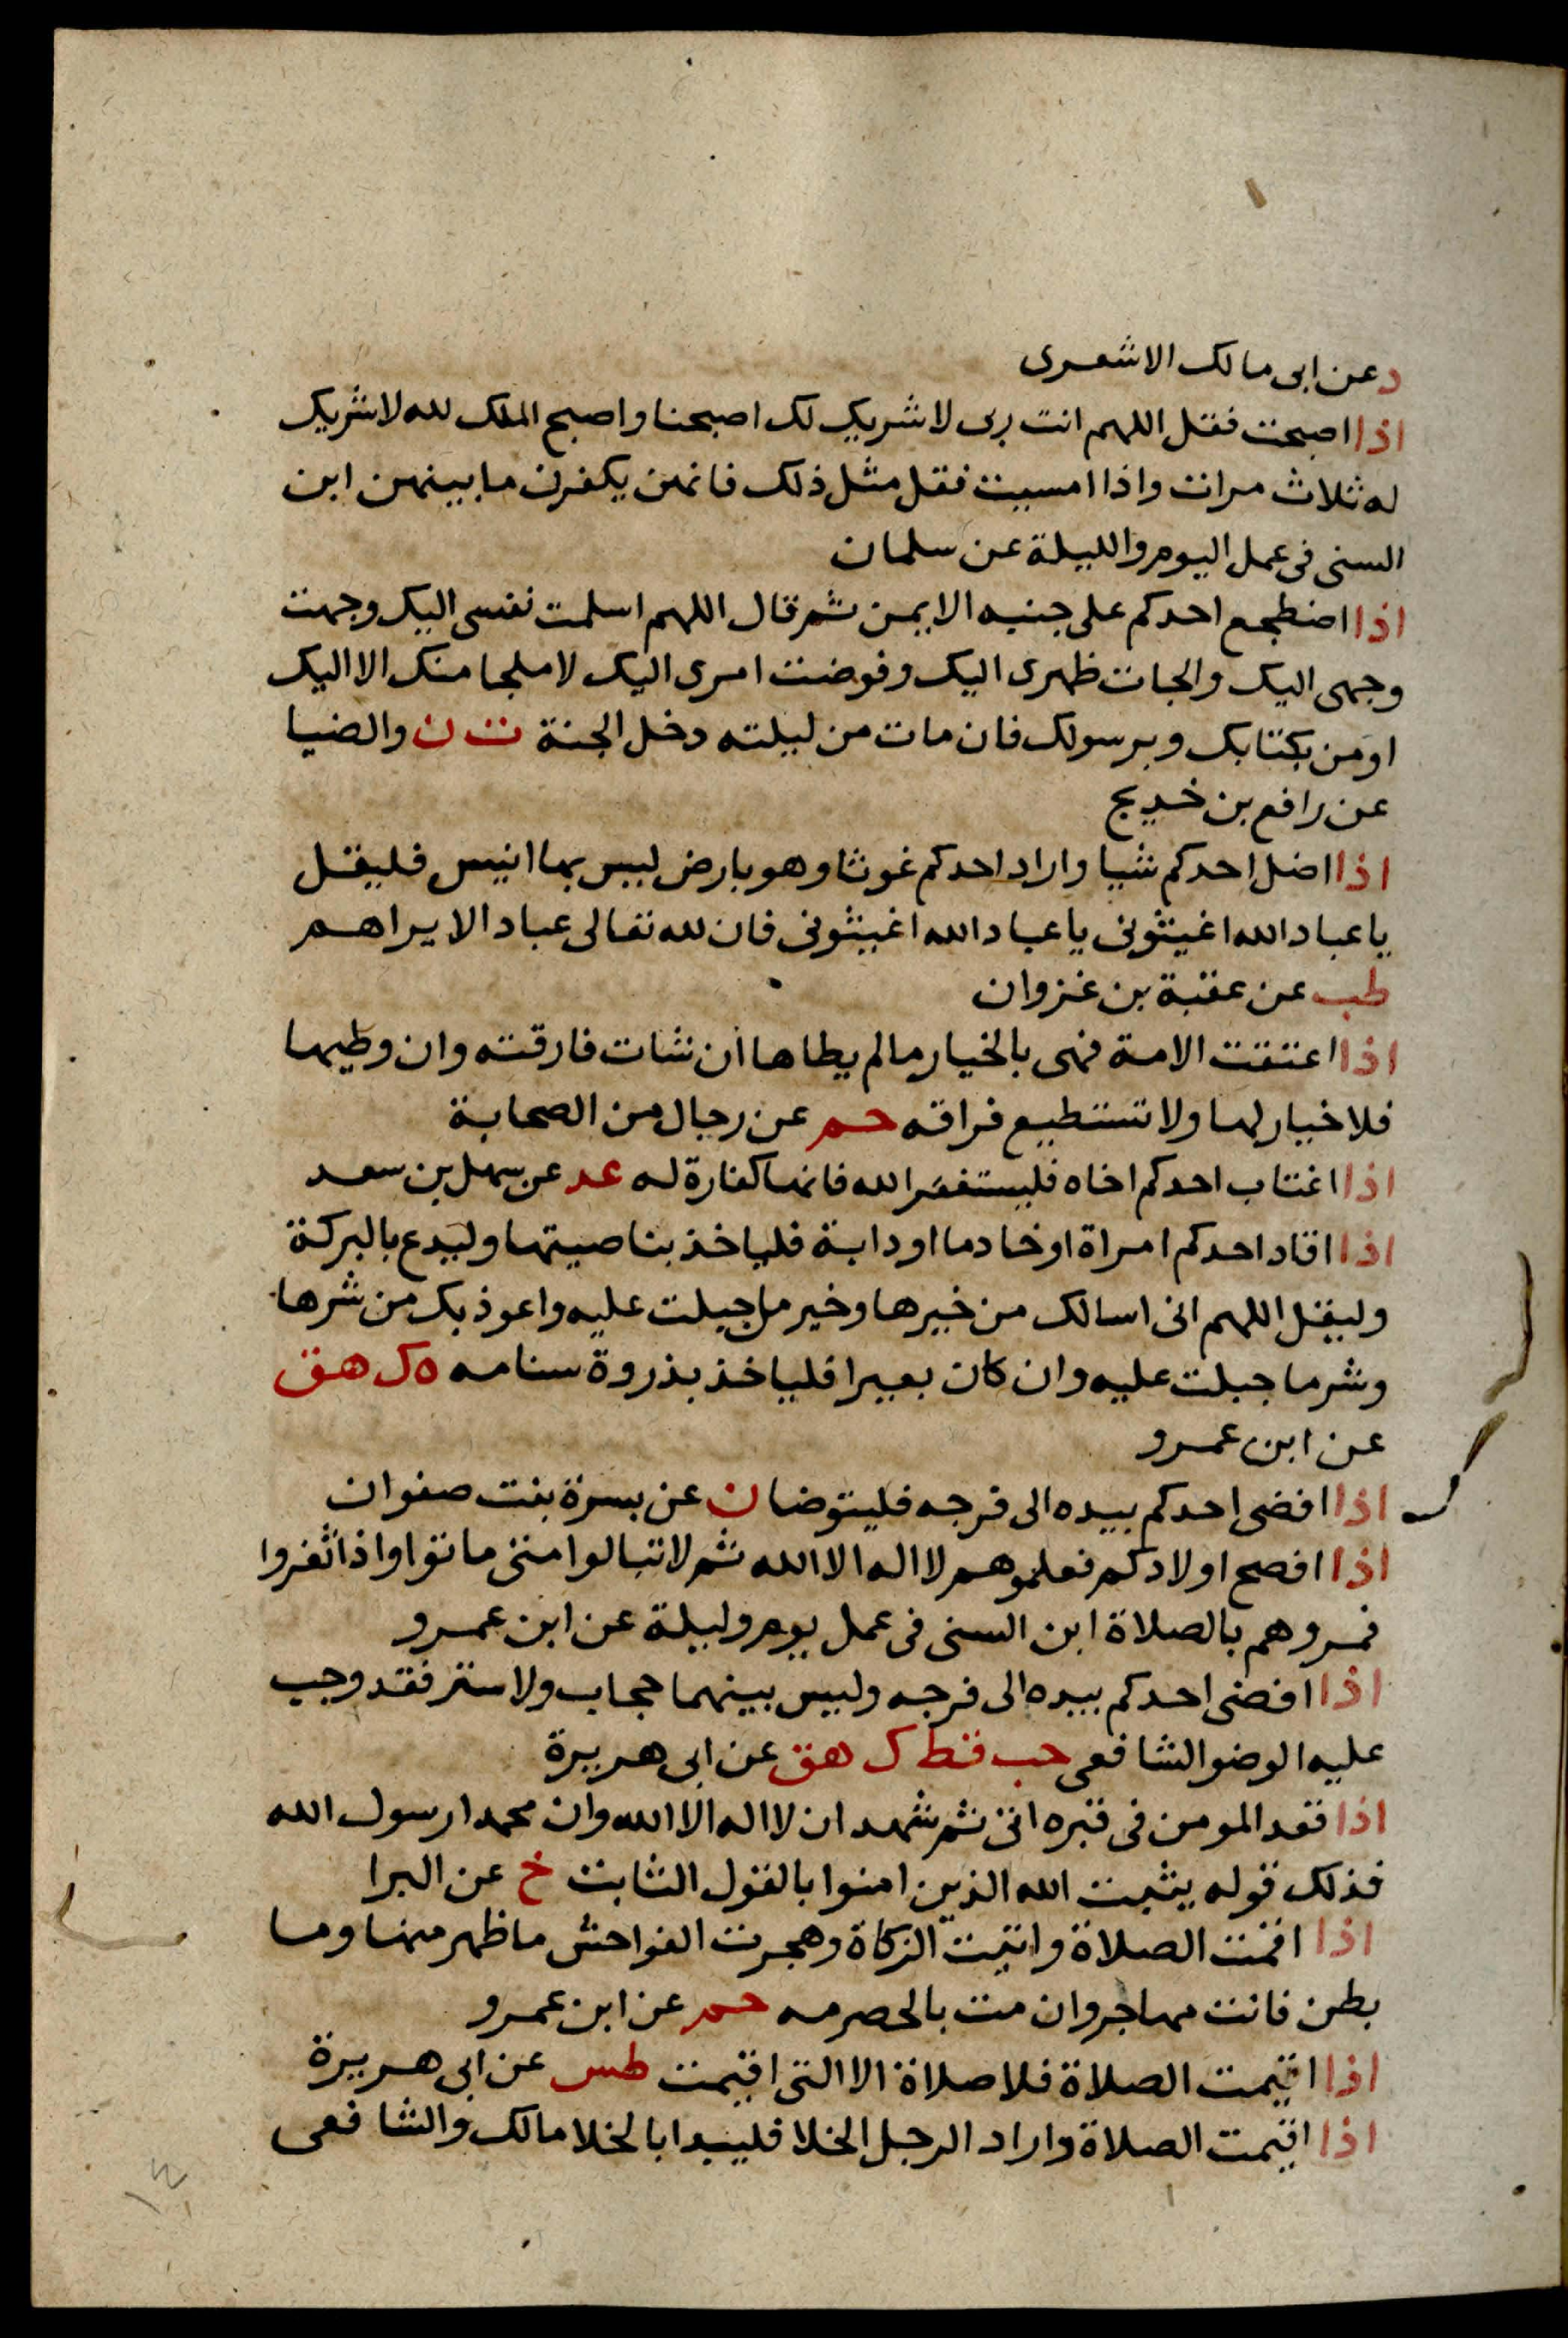 د عن ابى مالك الاشعرى
اذا اصبحت فقل اللهم انت ربى لا شريك لك اصبحنا واصبح الملك لله لا شريك
له ثلاث مرات واذا امسيت فقل مثل ذلك فانهن يكفرن ما بينهن ابن
السنى فى عمل اليوم والليلة عن سلمان
اذا اضطجع احدكم على جنبه الايمن ثم قال اللهم اسلمت نفسى اليك وجهت
وجهى اليك والجات ظهرى اليك وفوضت امرى اليك لا ملجا منك الا اليك
اومن بكتابك وبرسولك فان مات من ليلته دخل الجنة ت ن والضيا
عن رافع بن خديج
اذا اضل احدكم شيا واراد احدكم غوثا وهو بارض ليس بها انيس فليقل
يا عباد الله اغيثونى يا عباد الله اغيثونى فان لله تعالى عباد الا يراهم
طب عن عقبة بن غزوان
اذا اعتقت الامة فهى بالخيار ما لم يطاها ان شات فارقته وان وطيها
فلا خيار لها ولا تستطيع فراقه حم عن رجال من الصحابة
اذا اغتاب احدكم اخاه فليستغفر الله فانها كفارة له عد عن سهل بن سعد
اذا افاد احدكم امراة او خادما او دابة فلياخذ بناصيتها وليدع بالبركة
وليقل اللهم انى اسالك من خيرها وخير ما جبلت عليه واعوذ بك من شرها
وشر ما جبلت عليه وان كان بعيرا فلياخذ بذروة سنامه ه ك هق
عن ابن عمرو
اذا افضى احدكم بيده الى فرجه فليتوضا ن عن بسرة بنت صفوان
اذا افصح اولادكم فعلموهم لا اله الا الله ثم لا تبالوا متى ماتوا واذا اثغروا
فمروهم بالصلاة ابن السنى فى عمل يوم وليلة عن ابن عمرو
اذا افضى احدكم بيده الى فرجه وليس بينهما حجاب ولا ستر فقد وجب
عليه الوضو الشافعى حب قط ك هق عن ابى هريرة
اذا قعد المومن فى قبره اتى ثم شهد ان لا اله الا الله وان محمدا رسول الله
فذلك قوله يثبت الله الذين امنوا بالقول الثابت خ عن البرا
اذا اقمت الصلاة واتيت الزكاة وهجرت الفواحش ما ظهر منها وما
بطن فانت مهاجر وان مت بالحصرمه حم عن ابن عمرو
اذا اقيمت الصلاة فلا صلاة الا التى اقيمت طس عن ابى هريرة
اذا اقيمت الصلاة واراد الرجل الخلا فليبدا بالخلا مالك والشافعى